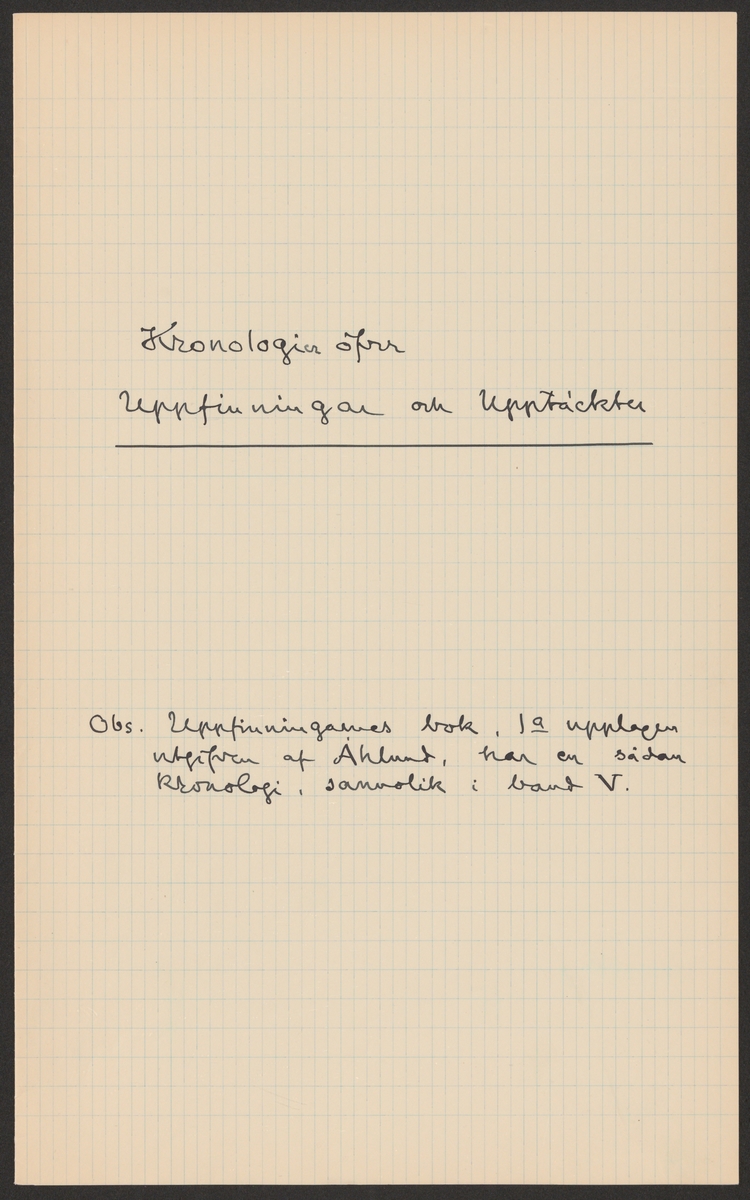 Kronologier öfver
Uppfinningar och Upptäckter
Obs. Uppfinningarnes bok, 1a upplagen
utgifven af Åhlund, har en sådan
kronologi, sannolik i band V.